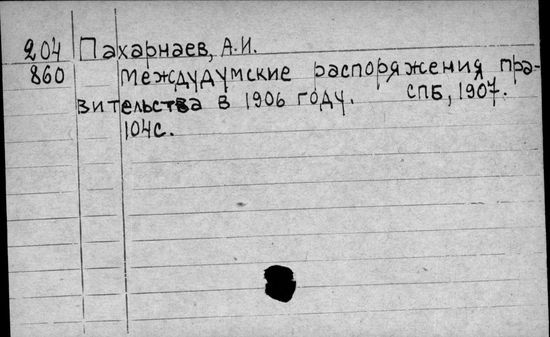 204 Пахарнаев, А.И.
860 Междудумские распоряжения пра-
вительства в 1906 году. СПБ, 1907.
104с.